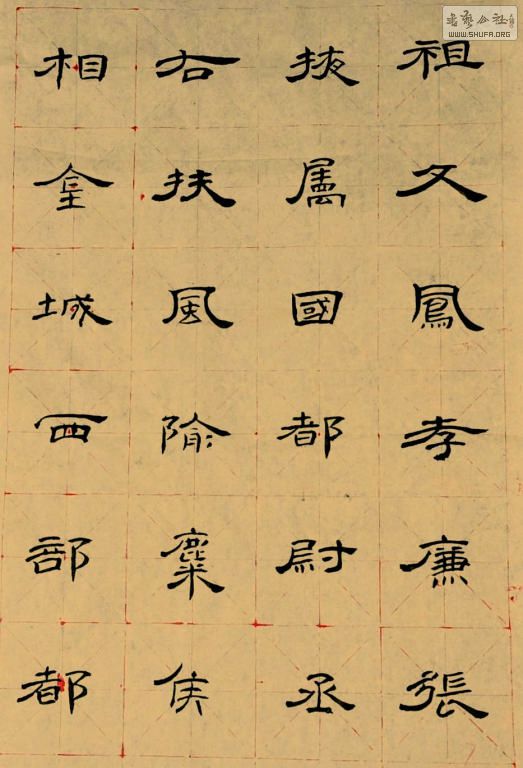 祖父鳳孝廉張
掖属國都尉丞
右扶風隃麋侯
相金城西部都
書藝公社
WWW.SHUFA.ORG